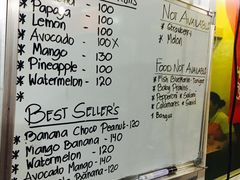 * Papaya - 100
* Lemon - 100
* Avocado - 100X
* Mango - 130
* Pineapple - 100
* Watermelon - 120
Best Seller's
* Banana Choco Peanut-120
* Mango Banana - 140
* Watermelon - 120
* Avocado Mango - 140
Banana - 120
Not Available
* Strawberry
* Melon
Food Not Available
* Fish
* Baby Prawns
* Pepperoni & Salami
* Calamares & Sauce
* Bangus